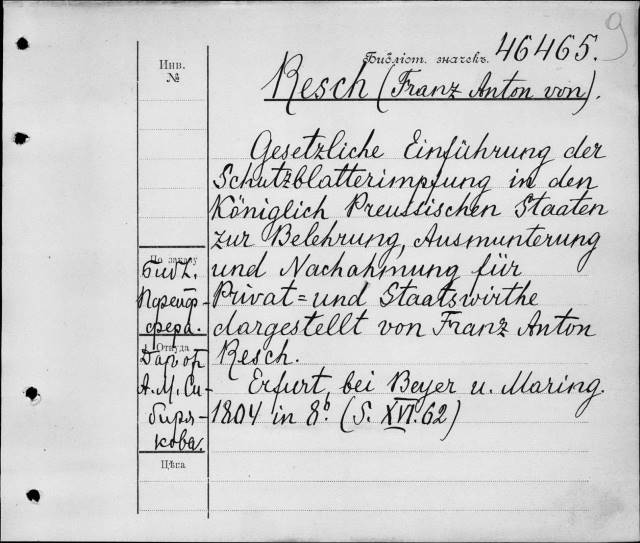 9
Библіот. значекъ. 46465.
Инв.
№
Resch (Franz Anton von).
Gesetzliche Einführung der
Schutzblatterimpfung in den
Königlich Preussischen Staaten
zur Belehrung, Ausmunterung
und Nachahmung für
Privat= und Staatswirthe
dargestellt von Franz Anton
Resch.
Erfurt, bei Beyer u. Maring.
1804 in 8º (S. XVI. 62)
По заказу
Библ.
Пфейф-
фера.
Откуда
Дар от
А. М. Си-
биря-
кова.
Цѣна